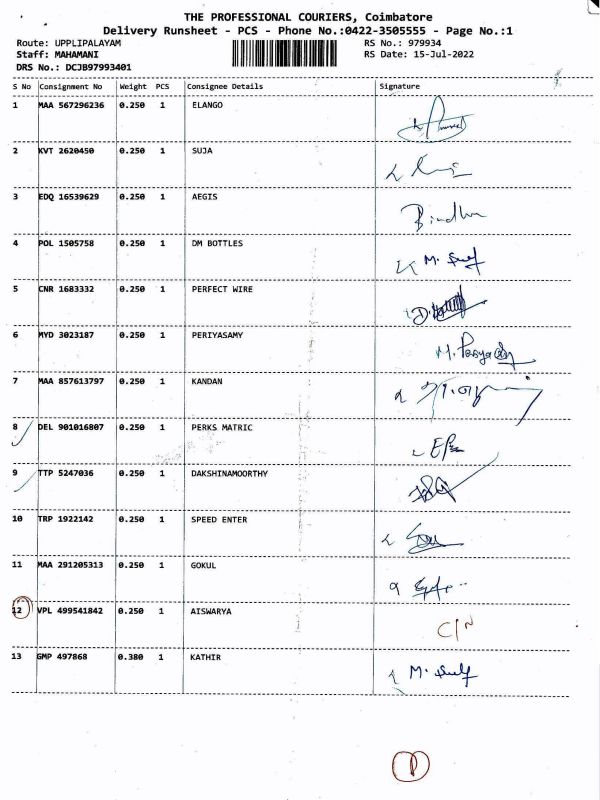 THE PROFESSIONAL COURIERS, Coimbatore
Delivery Runsheet - PCS - Phone No.:0422-3505555 - Page No.:1
Route: UPPLIPALAYAM RS No.: 979934
Staff: MAHAMANI RS Date: 15-Jul-2022
DRS No.: DCJB97993401
S No Consignment No Weight PCS Consignee Details Signature
1 MAA 567296236 0.250 1 ELANGO
2 KVT 2620450 0.250 1 SUJA
3 EDQ 16539629 0.250 1 AEGIS Bindhu
4 POL 1505758 0.250 1 DM BOTTLES
5 CNR 1683332 0.250 1 PERFECT WIRE
6 MYD 3023187 0.250 1 PERIYASAMY
7 MAA 857613797 0.250 1 KANDAN
8 DEL 901016807 0.250 1 PERKS MATRIC
9 TTP 5247036 0.250 1 DAKSHINAMOORTHY
10 TRP 1922142 0.250 1 SPEED ENTER
11 MAA 291205313 0.250 1 GOKUL
12 VPL 499541842 0.250 1 AISWARYA C/N
13 GMP 497868 0.380 1 KATHIR
1